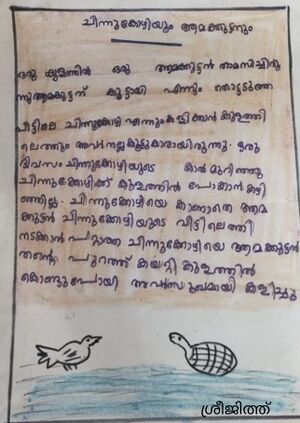 ചിന്നുകോഴിയും ആമക്കുട്ടനും
ഒരു കുളത്തിൽ ഒരു ആമക്കുട്ടൻ താമസിച്ചിരു
ന്നു ആമകുട്ടന് കൂട്ടായി എന്നും തൊട്ടടുത്ത
വീട്ടിലെ ചിന്നുകോഴി എന്നും കളിക്കാൻ കുളത്തി
ലെത്തും അവർ നല്ല കൂട്ടുകാരായിരുന്നു. ഒരു
ദിവസം ചിന്നുകോഴിയുടെ കാൽ മുറിഞ്ഞു
ചിന്നുകോഴിക്ക് കുളത്തിൽ പോകാൻ കഴി
ഞ്ഞില്ല. ചിന്നുകോഴിയെ കാണാതെ ആമ
കുട്ടൻ ചിന്നുകോഴിയുടെ വീട്ടിലെത്തി
നടക്കാൻ പറ്റാത്ത ചിന്നുകോഴിയെ ആമക്കുട്ടൻ
തന്റെ പുറത്ത് കയറ്റി കുളത്തിൽ
കൊണ്ടുപോയി അവർ സുഖമായി കളിച്ചു
ശ്രീജിത്ത്